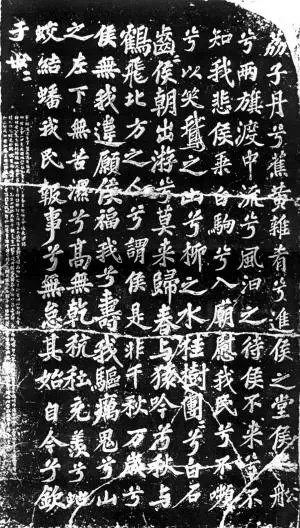 荔子丹兮蕉黄雜肴兮進侯之堂侯之船
兮兩旗渡中流兮風汩之待侯不来兮不
知我悲侯乗白駒兮入廟慰我民兮不嚬
兮以笑鵞之山兮柳之水桂樹團〻兮白石
齒〻侯朝出游兮莫来歸春与猨吟兮秋与
鶴飛北方之人兮謂侯是非千秋万歲兮
侯無我違願侯福我兮壽我驅癘鬼兮山
之左下無苦濕兮髙無乾秔稌充羨兮虵
蛟結蟠我民報事兮無怠其始自今兮欽
于世〻